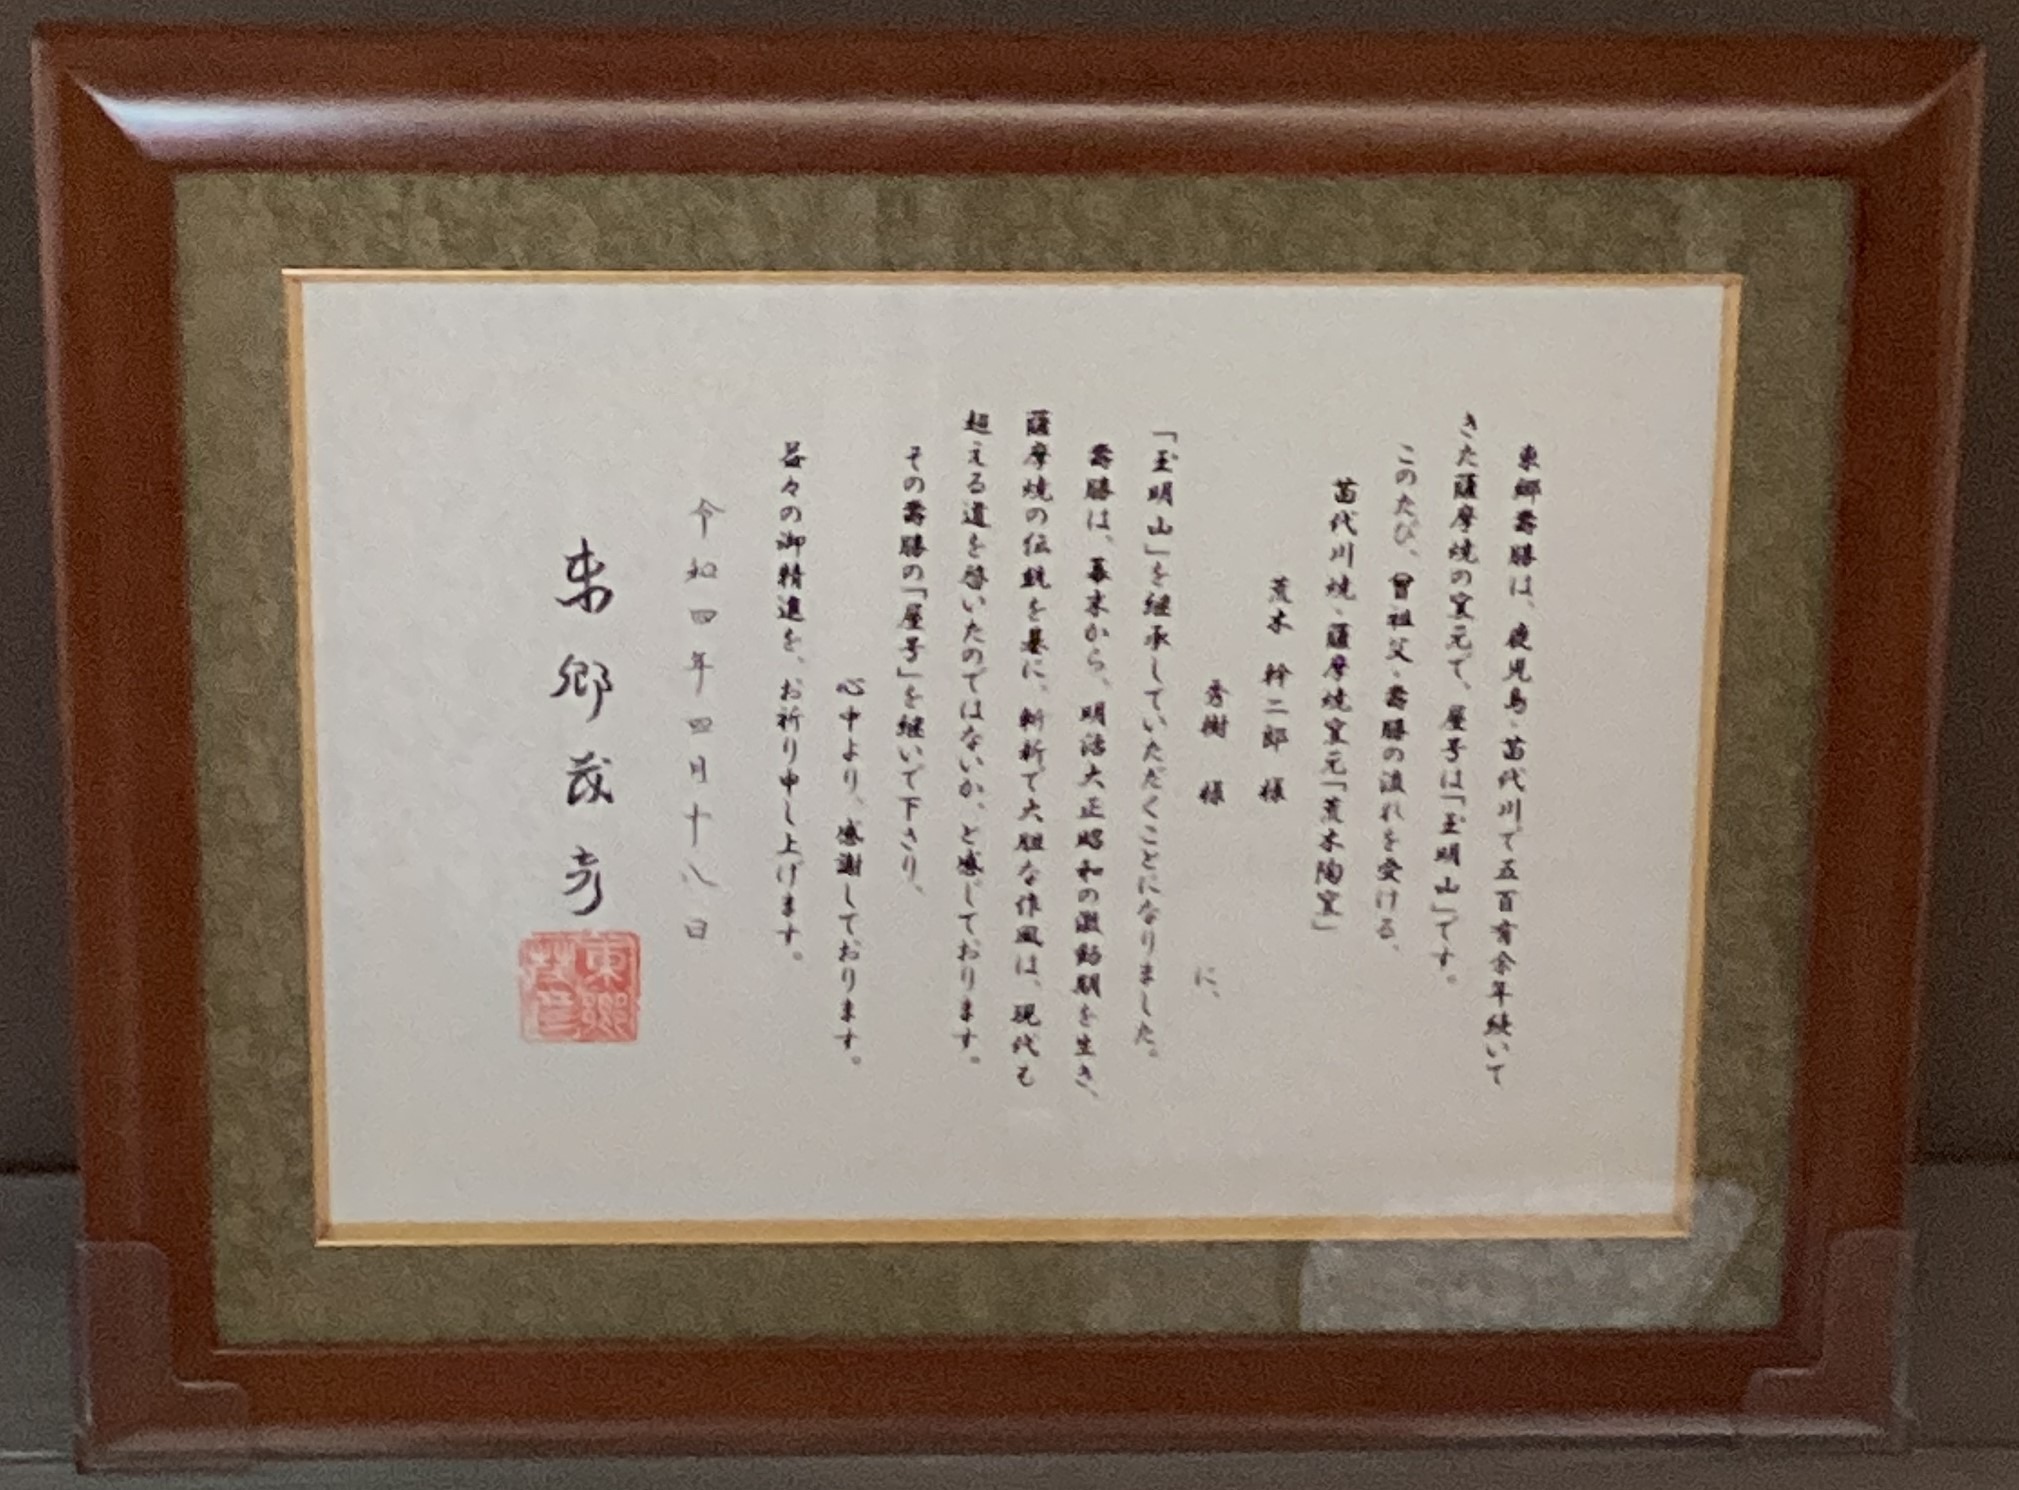 東郷壽勝は、鹿児島・苗代川で五百有余年続いて
きた薩摩焼の窯元で、屋号は「玉明山」です。
このたび、曾祖父・壽勝の流れを受ける、
苗代川焼・薩摩焼窯元「荒木陶窯」
荒木 幹二郎 様
秀樹 様 に、
「玉明山」を継承していただくことになりました。
壽勝は、幕末から、明治大正昭和の激動期を生き、
薩摩焼の伝統を基に、斬新で大胆な作風は、現代も
超える道を啓いたのではないか、と感じております。
その壽勝の「屋号」を継いで下さり、
心中より、感謝しております。
益々の御精進を、お祈り申し上げます。
令和四年四月十八日
東郷茂彦
東郷茂彦